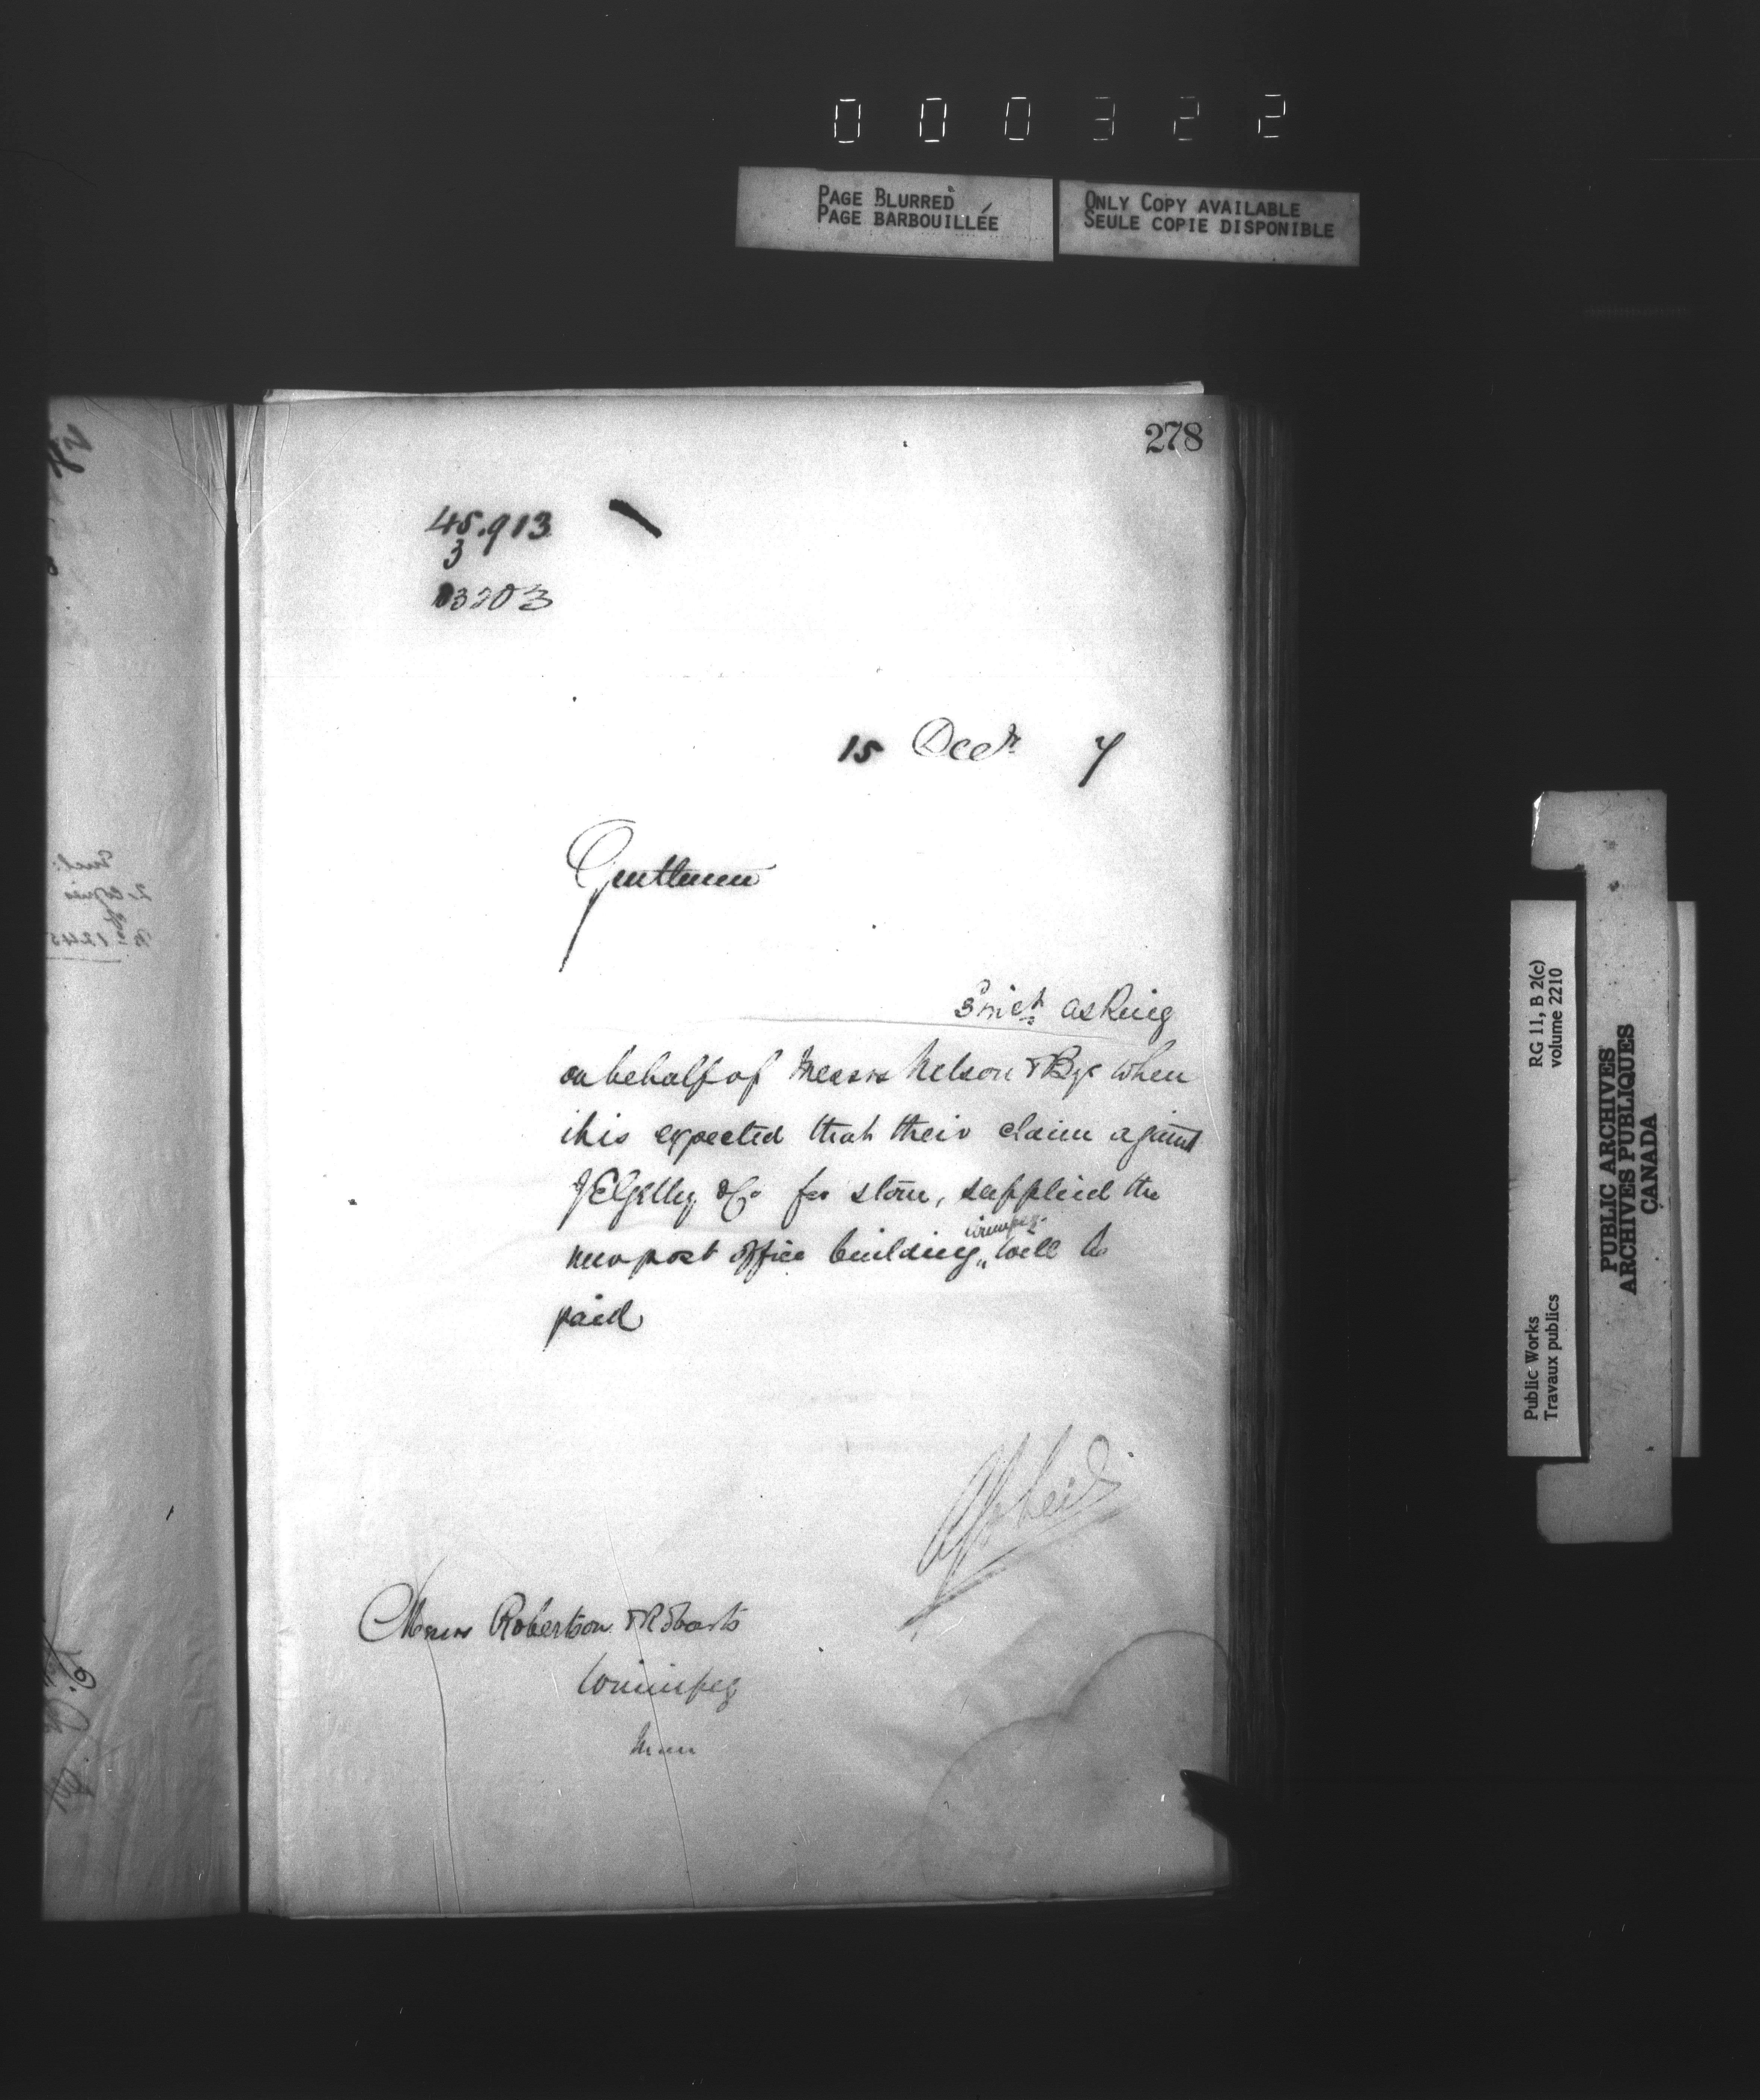 000322
PAGE BLURRED
PAGE BARBOUILLÉE
ONLY COPY AVAILABLE
SEULE COPIE DISPONIBLE
278
45.913
3
15 Decr 7
Gentlemen
3 inst asking
on behalf of Messrs Nelson & when
it is expected that their claim against
J E Gelley & Co for stone, supplied the
new post office building, Winnipeg, will be
paid
Messrs Robertson &
Winnipeg
Man
RG 11, B 2(c)
volume 2210
Public Works
Travaux publics
PUBLIC ARCHIVES
ARCHIVES PUBLIQUES
CANADA